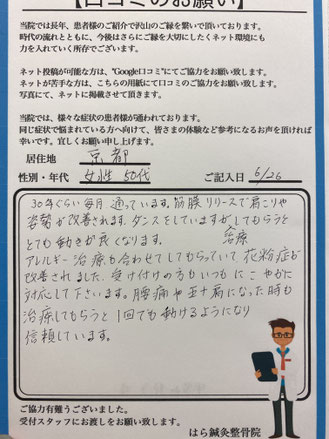 【口コミのお願い】
当院では長年、患者様のご紹介で沢山のご縁を繋いで頂いております。
時代の流れとともに、今後はさらにご縁を大切にしたくネット環境にも
力を入れていく所存でございます。
ネット投稿が可能な方は、"Google口コミ"にてご協力をお願い致します。
ネットが苦手な方は、こちらの用紙にて口コミのご協力をお願い致します。
写真にて、ネットに掲載させて頂きます。
当院では、様々な症状の患者様が通われております。
同じ症状で悩まれている方へ向けて、皆さまの体験など参考になるお声を頂ければ
幸いです。宜しくお願い申し上げます。
居住地 京都
性別・年代 女性 50代 ご記入日 6/26
30年ぐらい毎月通っています。筋膜リリースで肩こりや
姿勢が改善されます。ダンスをしていますがしてもらうと
とても動きが良くなります。 治療
アレルギー治療も合わせてしてもらっていて花粉症が
改善されました。受け付けの方もいつもにこやかに
対応して下さいます。腰痛や五十肩になった時も
治療してもらうと1回でも動けるようになり
信頼しています。
ご協力有難うございました。
受付スタッフにお渡しをお願い致します。
はら鍼灸整骨院